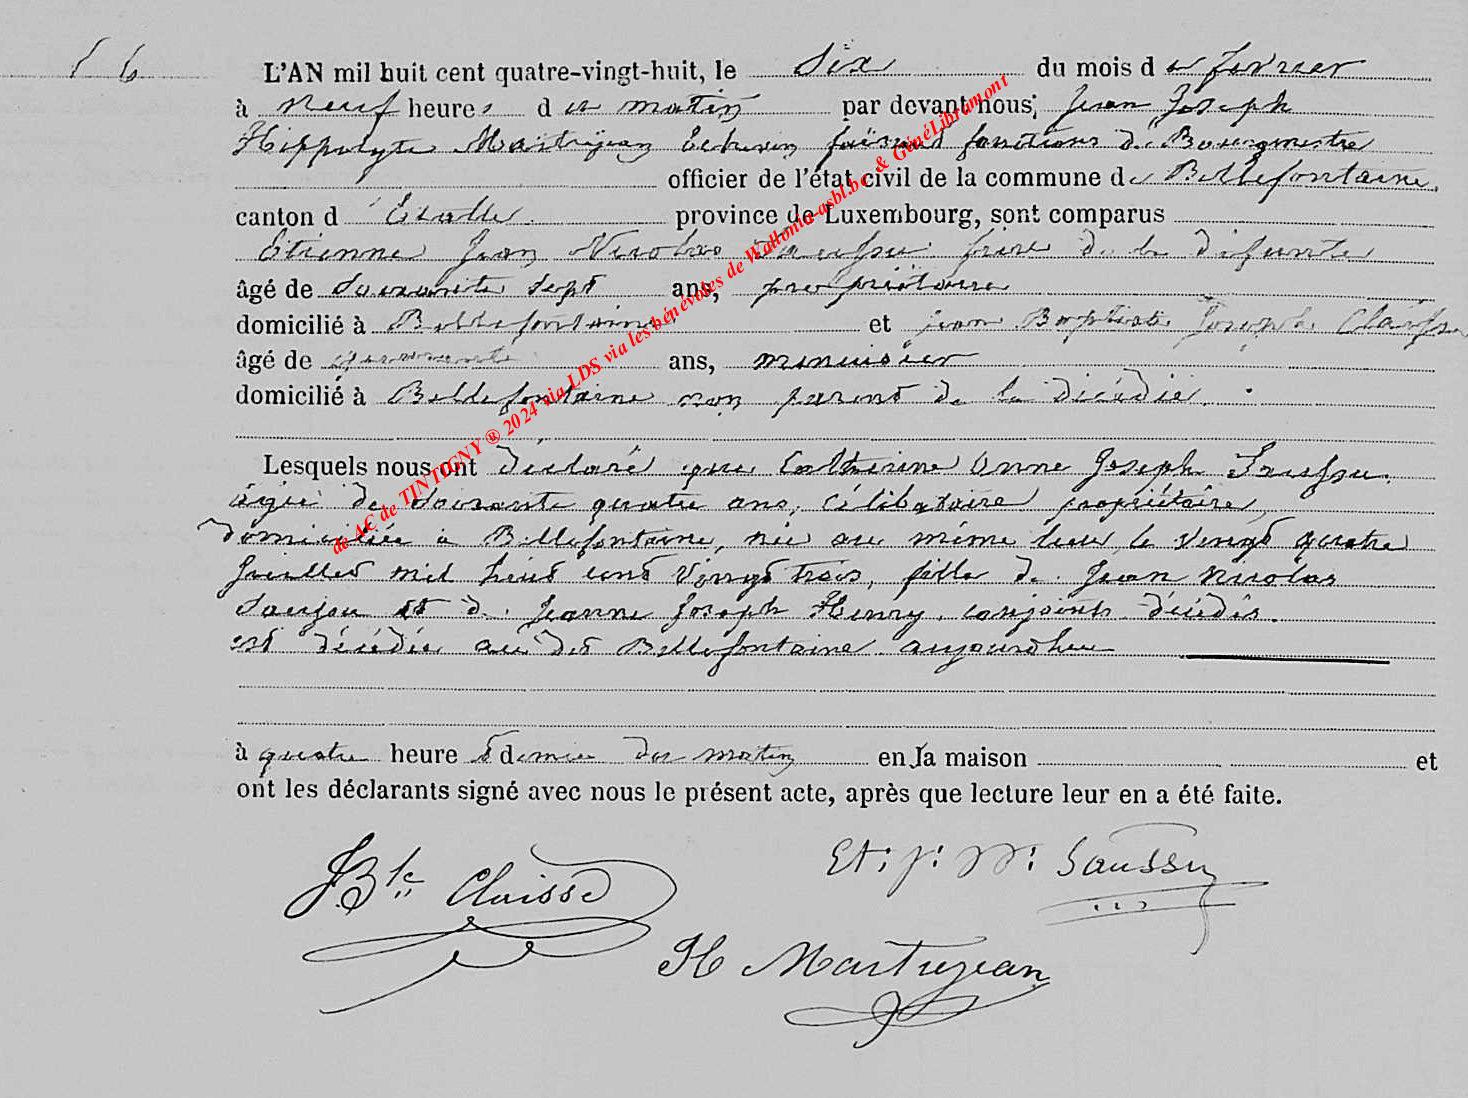 L'AN mil huit cent quatre-vingt-huit, le Six du mois de février
à neuf heures du matin par devant nous, Jean Joseph
Hippolyte Martrejean Echevin faisant fonctions de Bourgmestre
officier de l'état civil de la commune de Bellefontaine,
canton d'Etalle province de Luxembourg, sont comparus
Etienne Jean Nicolas Saussu frère de la défunte
âgé de Soixante sept ans, propriétaire
domicilié à Bellefontaine et jean Baptiste Joseph Claisse
âgé de quarante ans, menuisier
domicilié à Bellefontaine non parent de la décédée.
Lesquels nous ont déclaré que Catherine Anne Joseph Saussu
âgée de soixante quatre ans, célibataire propriétaire,
domiciliée à Bellefontaine, née au même lieu le vingt quatre
Juillet mil huit cent vingt trois, fille de Jean Nicolas
et de Jeanne Joseph Henry, conjoints décédés.
est décédée au dit Bellefontaine aujourdhui
à quatre heure et demie du matin en la maison et
ont les déclarants signé avec nous le présent acte, après que lecture leur en a été faite.
JBte Claisse
Et: J: N: Saussu
H Martrejean
de AC de TINTIGNY ® 2024 via LDS via les bénévoles de Wallonia-asbl.be & GénéLibramont